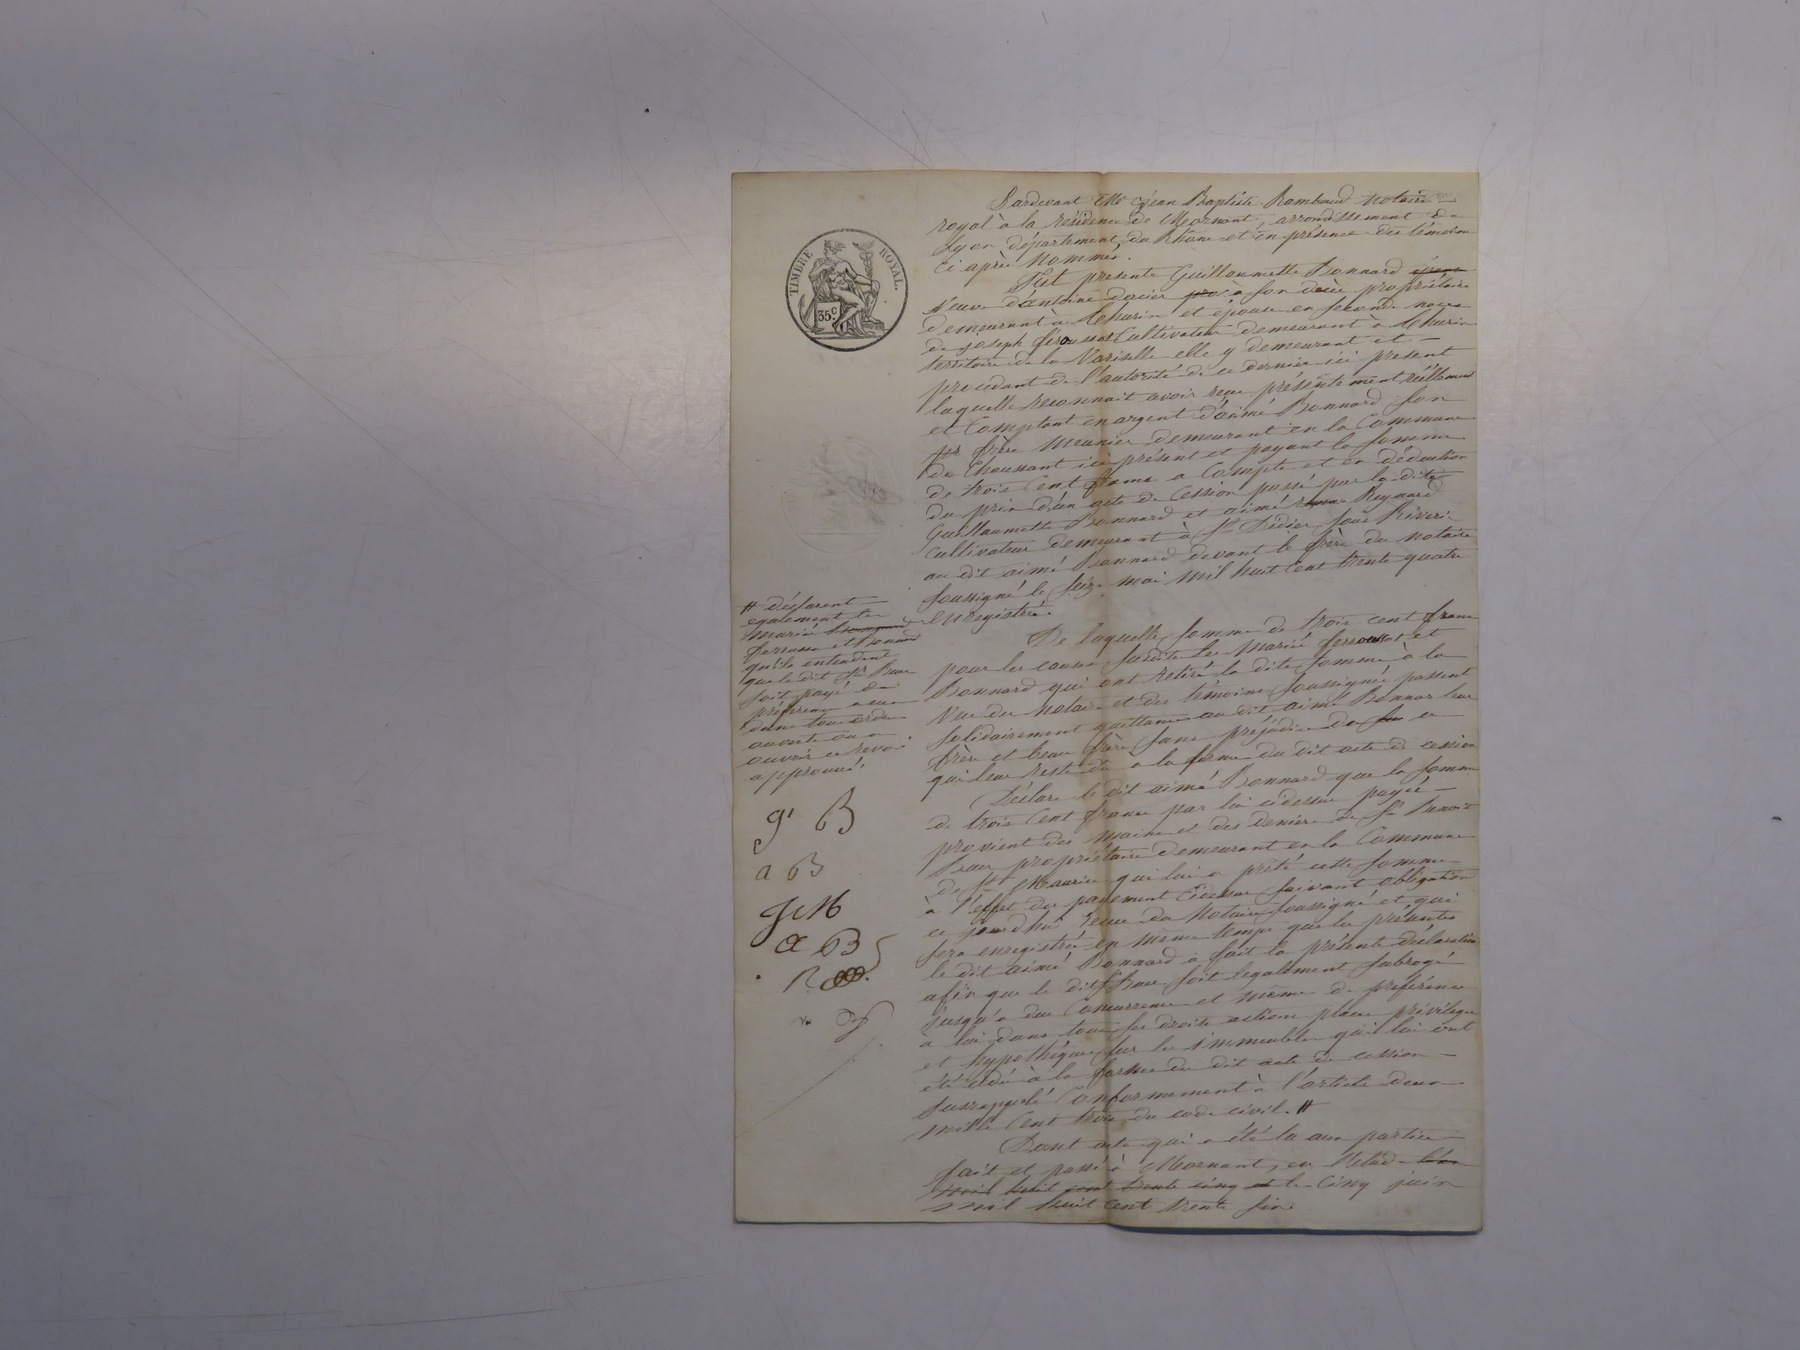 TIMBRE ROYAL.
35c.
Pardevant Me Jean Baptiste Rambaud notaire
royal à la résidence de Mornant, arrondissement de
Lyon département du Rhône et en présence des témoins
ci après nommés.
Fut presente Guillaumette Bonnard épouse
veuve d'antoine dacier à son décès propriétaire
demeurant à st hurin et épouse en seconde noces
de joseph ferroussat Cultivateur demeurant à
territoire de la Variselle elle y demeurant et
procedant de l'autorité de ce dernier ici présent
laquelle reconnait avoir reçu présentement réellement
et Comptant en argent d'aimé Bonnard son
frère meunier demeurant en la Commune
de Chaussant ici présent et payant la somme
de trois Cent francs a Compte et en déduction
du prix d'un acte de Cession passé par la dite
Guillaumette Bonnard et aimé Reynard
Cultivateur demeurant à St Didier sous Riverie
au dit aimé Bonnard devant le frère du notaire
soussigné le seize mai mil huit Cent trente quatre
enregistré.
De laquelle somme de trois cent francs
pour les causes susdites les mariés ferroussat et
Bonnard qui ont retiré la dite somme à la
vue du notaire et des témoins soussignés passent
solidairement quittance au dit aimé Bonnard leur
frère et beau frère sans préjudice de ce
qui leur reste dû a la forme du dit acte de cession
Déclare le dit aimé Bonnard que la somme
de trois Cent francs par lui cidessus payée
provient des mains et des deniers de Sr Benoit
Baur propriétaire demeurant en la Commune
de St Maurice qui lui a prêté cette somme
à l'effet du payement cidessus suivant obligation
ce jourdhui reçue du Notaire soussigné et qui
sera enregistrée en même temps que les présentes
le dit aimé Bonnard a fait la présente déclaration
afin que le dit Sr Baur soit legalement subrogé
jusqu'a due Concurrence et même de préférence
à lui dans tous ses droits actions places privilèges
et hypothèques sur les immeubles qui lui ont
été cédés à la forme du dit acte de cession
susrappelé Conformement à l'article deux
mille Cent trois du code civil. #
Dont acte qui a été lu aux parties
fait et passé à Mornant, en l'étude l'an
mil huit cent trente cinq et le cinq juin
mil huit cent trente six.
# déclarent
egalement les
mariés
ferroussat et Bonnard
qu'ils entendent
que le dit Sr Baur
soit payé de
préférence a eux
dans tous ordres
ouverts ou a
ouvrir ce renvoi
approuvé.
g. B
a B
J C M
a B
R